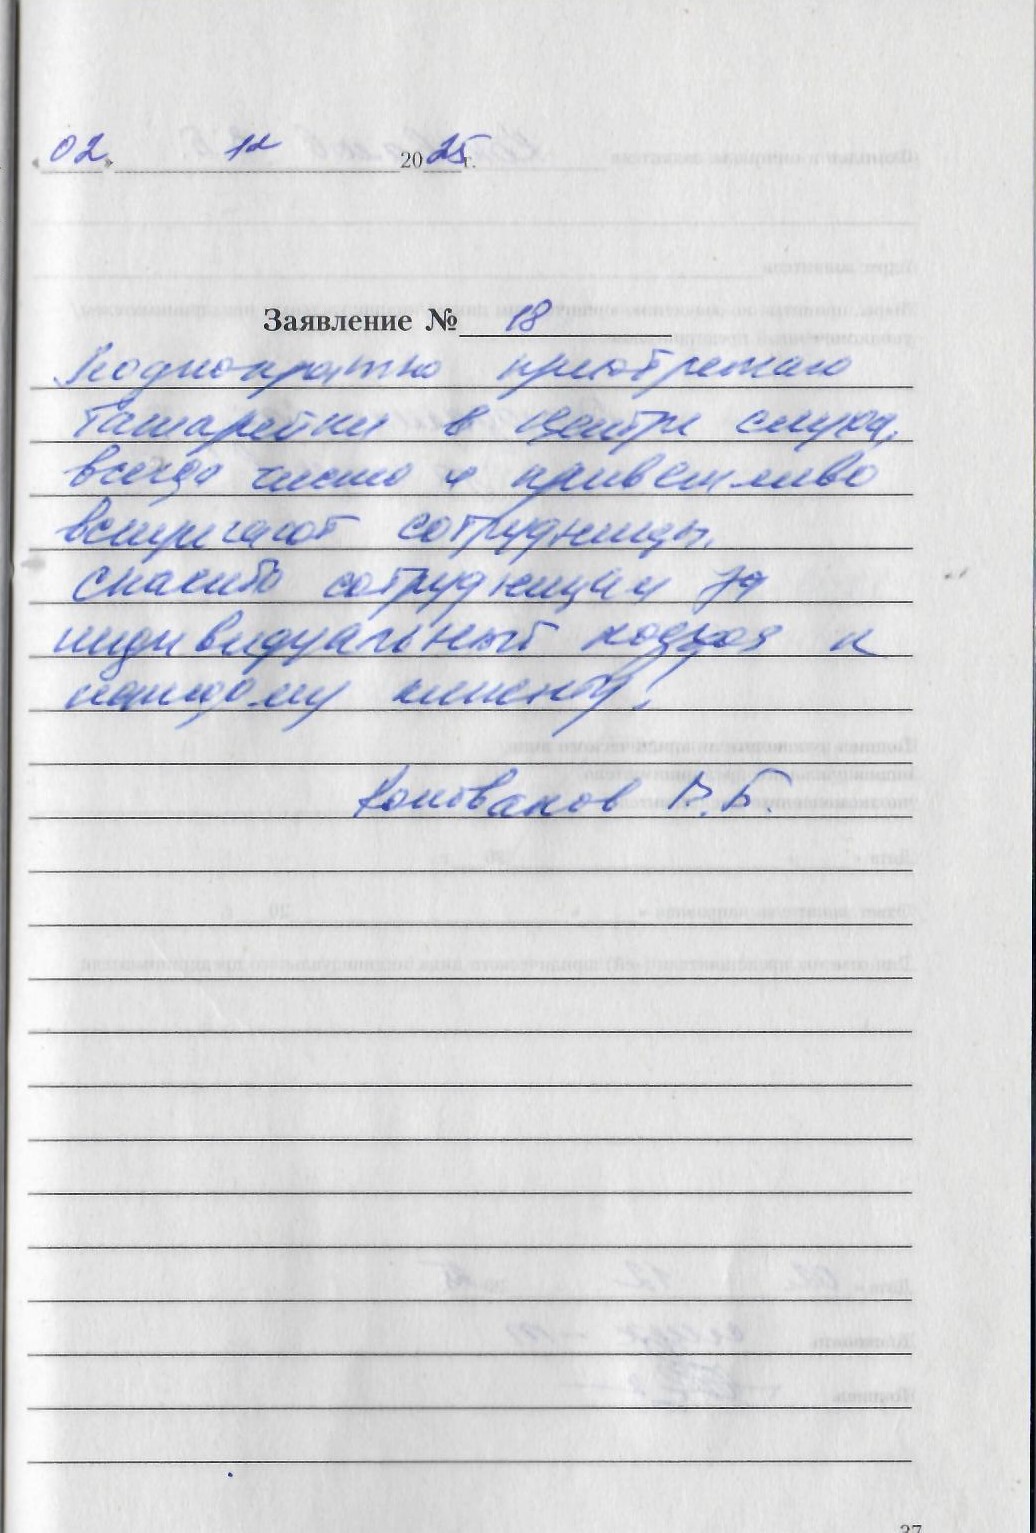 «02» 12 2025 г.
Заявление № 18
приобретаю
батарейки в центре слуха,
всегда чисто и приветливо
встречают сотрудницы.
Спасибо сотрудницам за
индивидуальный подход к
каждому клиенту!
В.Б.
37